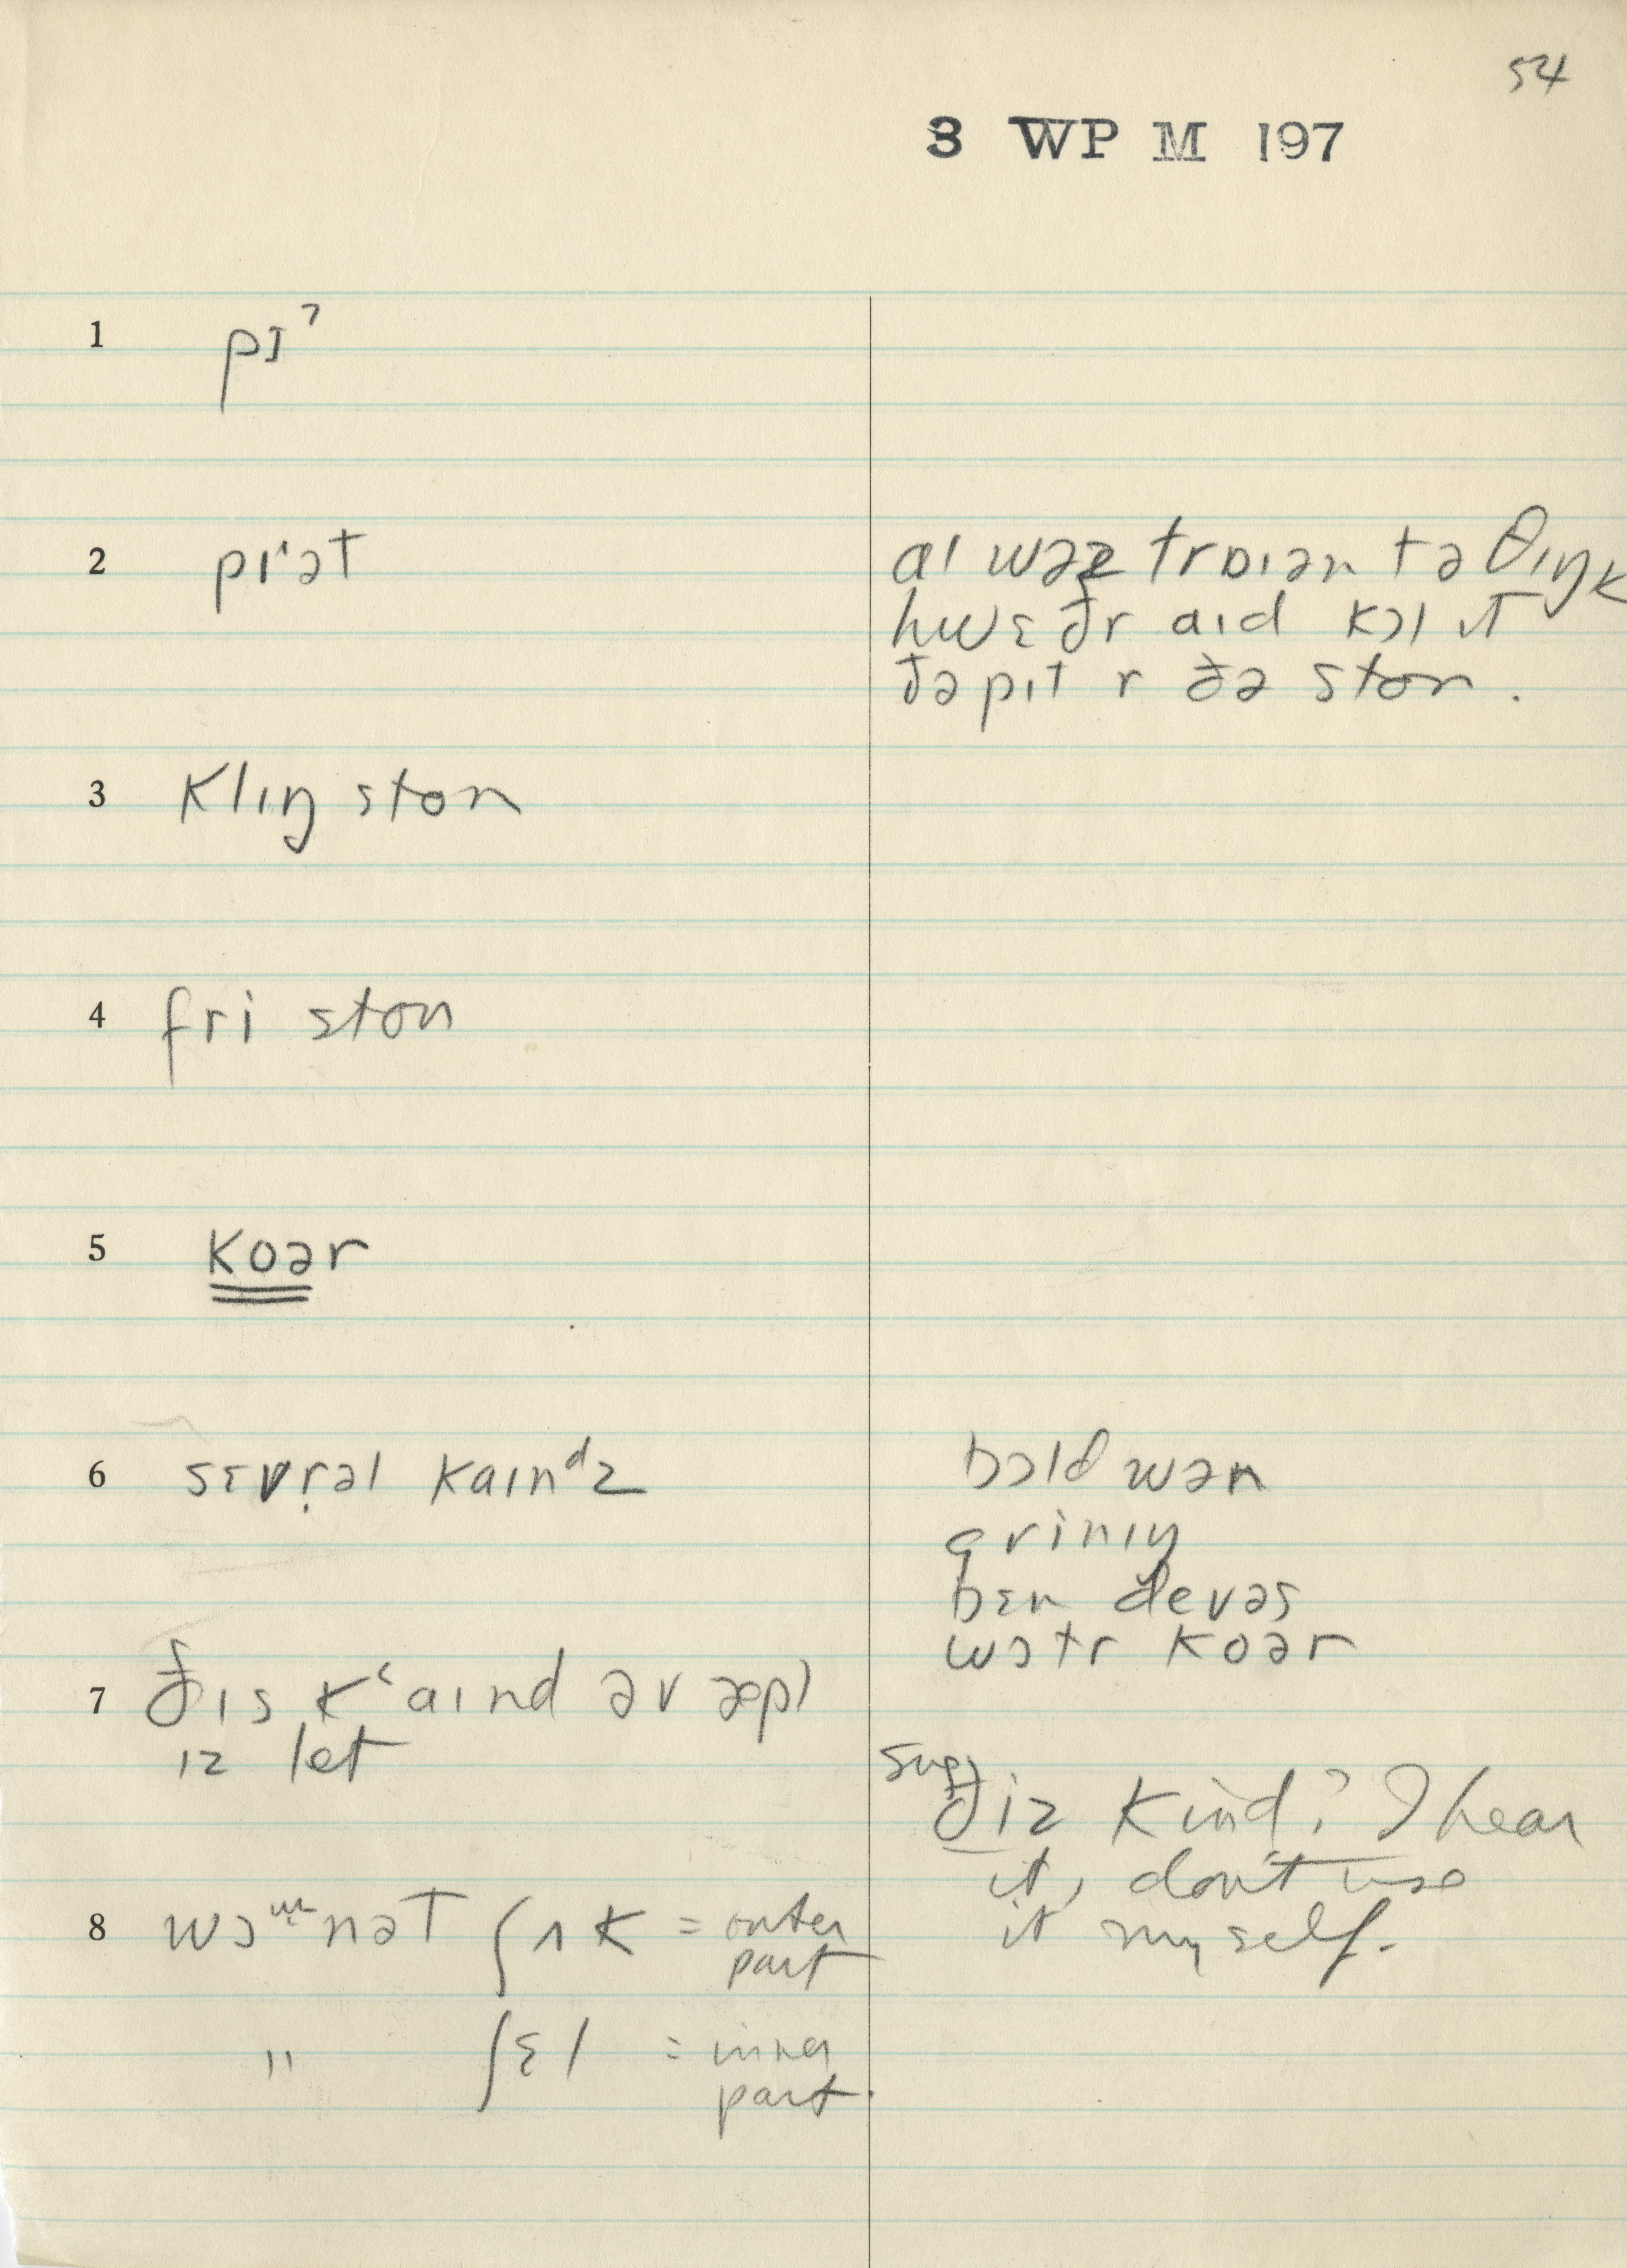 54
3 WP M 197
1 pɪˀ
2 pɪˈət
aɪ wəz trɒɪən tə θɪŋk
hwɛðr aɪd kɔl ɪt
ðə pɪt r ðə ston .
3 klɪŋ ston
4 fri ston
5 koər
6 sɛvr̩əl kaɪnᵈz
bɔldwən
grinɪŋ
bɛn devəs
wɔtr koər
7 ðɪs kʻaɪnd əv æpl
ɪz let
sug) ðiz kind? I hear
it, don't use
it myself.
8 nət ʃʌk = outer
part
" ʃɛl = inner
part.